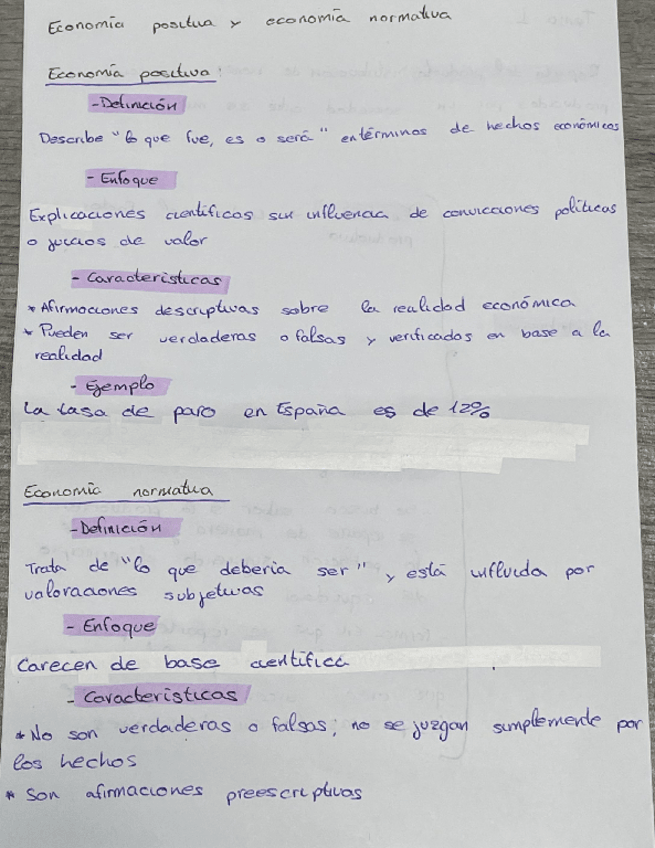 Economía positiva y economía normativa
Economía positiva:
- Definición
Describe "lo que fue, es o será" en términos de hechos económicos
- Enfoque
Explicaciones científicas sin influencia de convicciones políticas
o juicios de valor
- Características
* Afirmaciones descriptivas sobre la realidad económica
* Pueden ser verdaderas o falsas y verificadas en base a la
realidad
- Ejemplo
La tasa de paro en España es de 12%
Economía normativa
- Definición
Trata de "lo que debería ser", y está influida por
valoraciones subjetivas
- Enfoque
Carecen de base científica
- Características
* No son verdaderas o falsas; no se juzgan simplemente por
los hechos
* Son afirmaciones preescriptivas